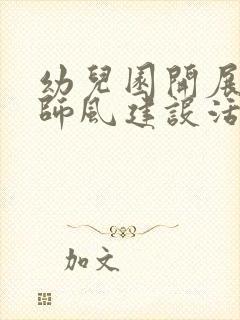 幼兒園開展
師風建設活
加文